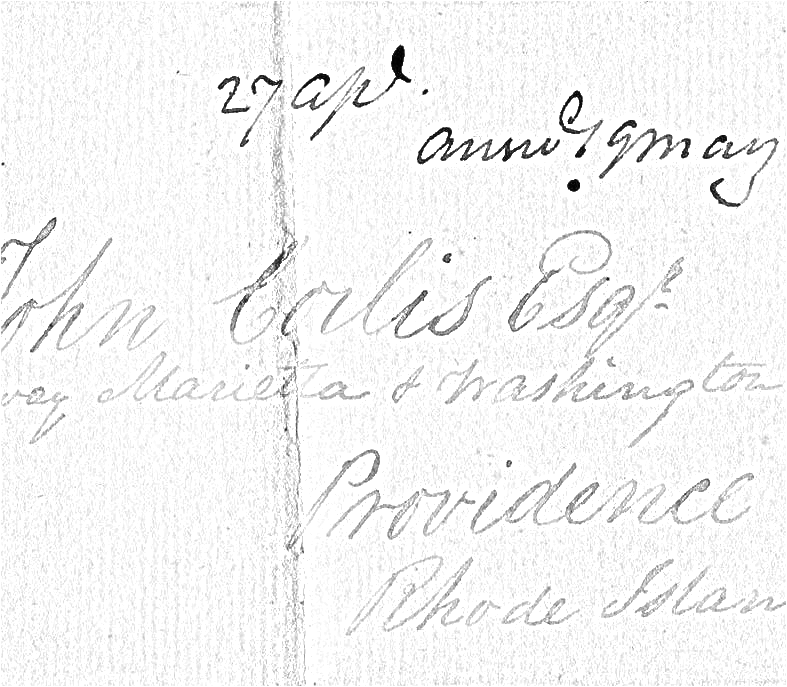 27 apl.
answd. 9 may
John Corlis Esqr.
way Marietta & Washington
Providence
Rhode Islan